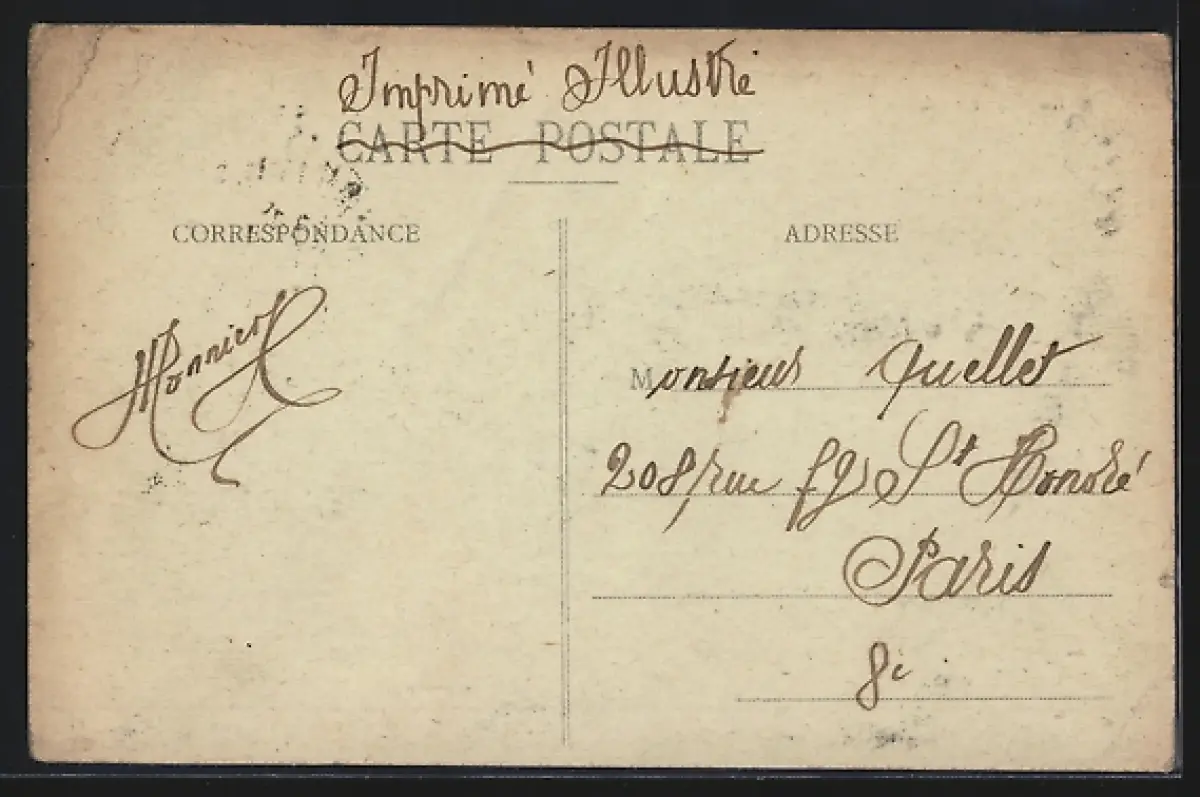 Imprimé Illustré
CARTE POSTALE
CORRESPONDANCE
ADRESSE
Monnier
Monsieur Quellet
208 rue fg St Honoré
Paris
8e